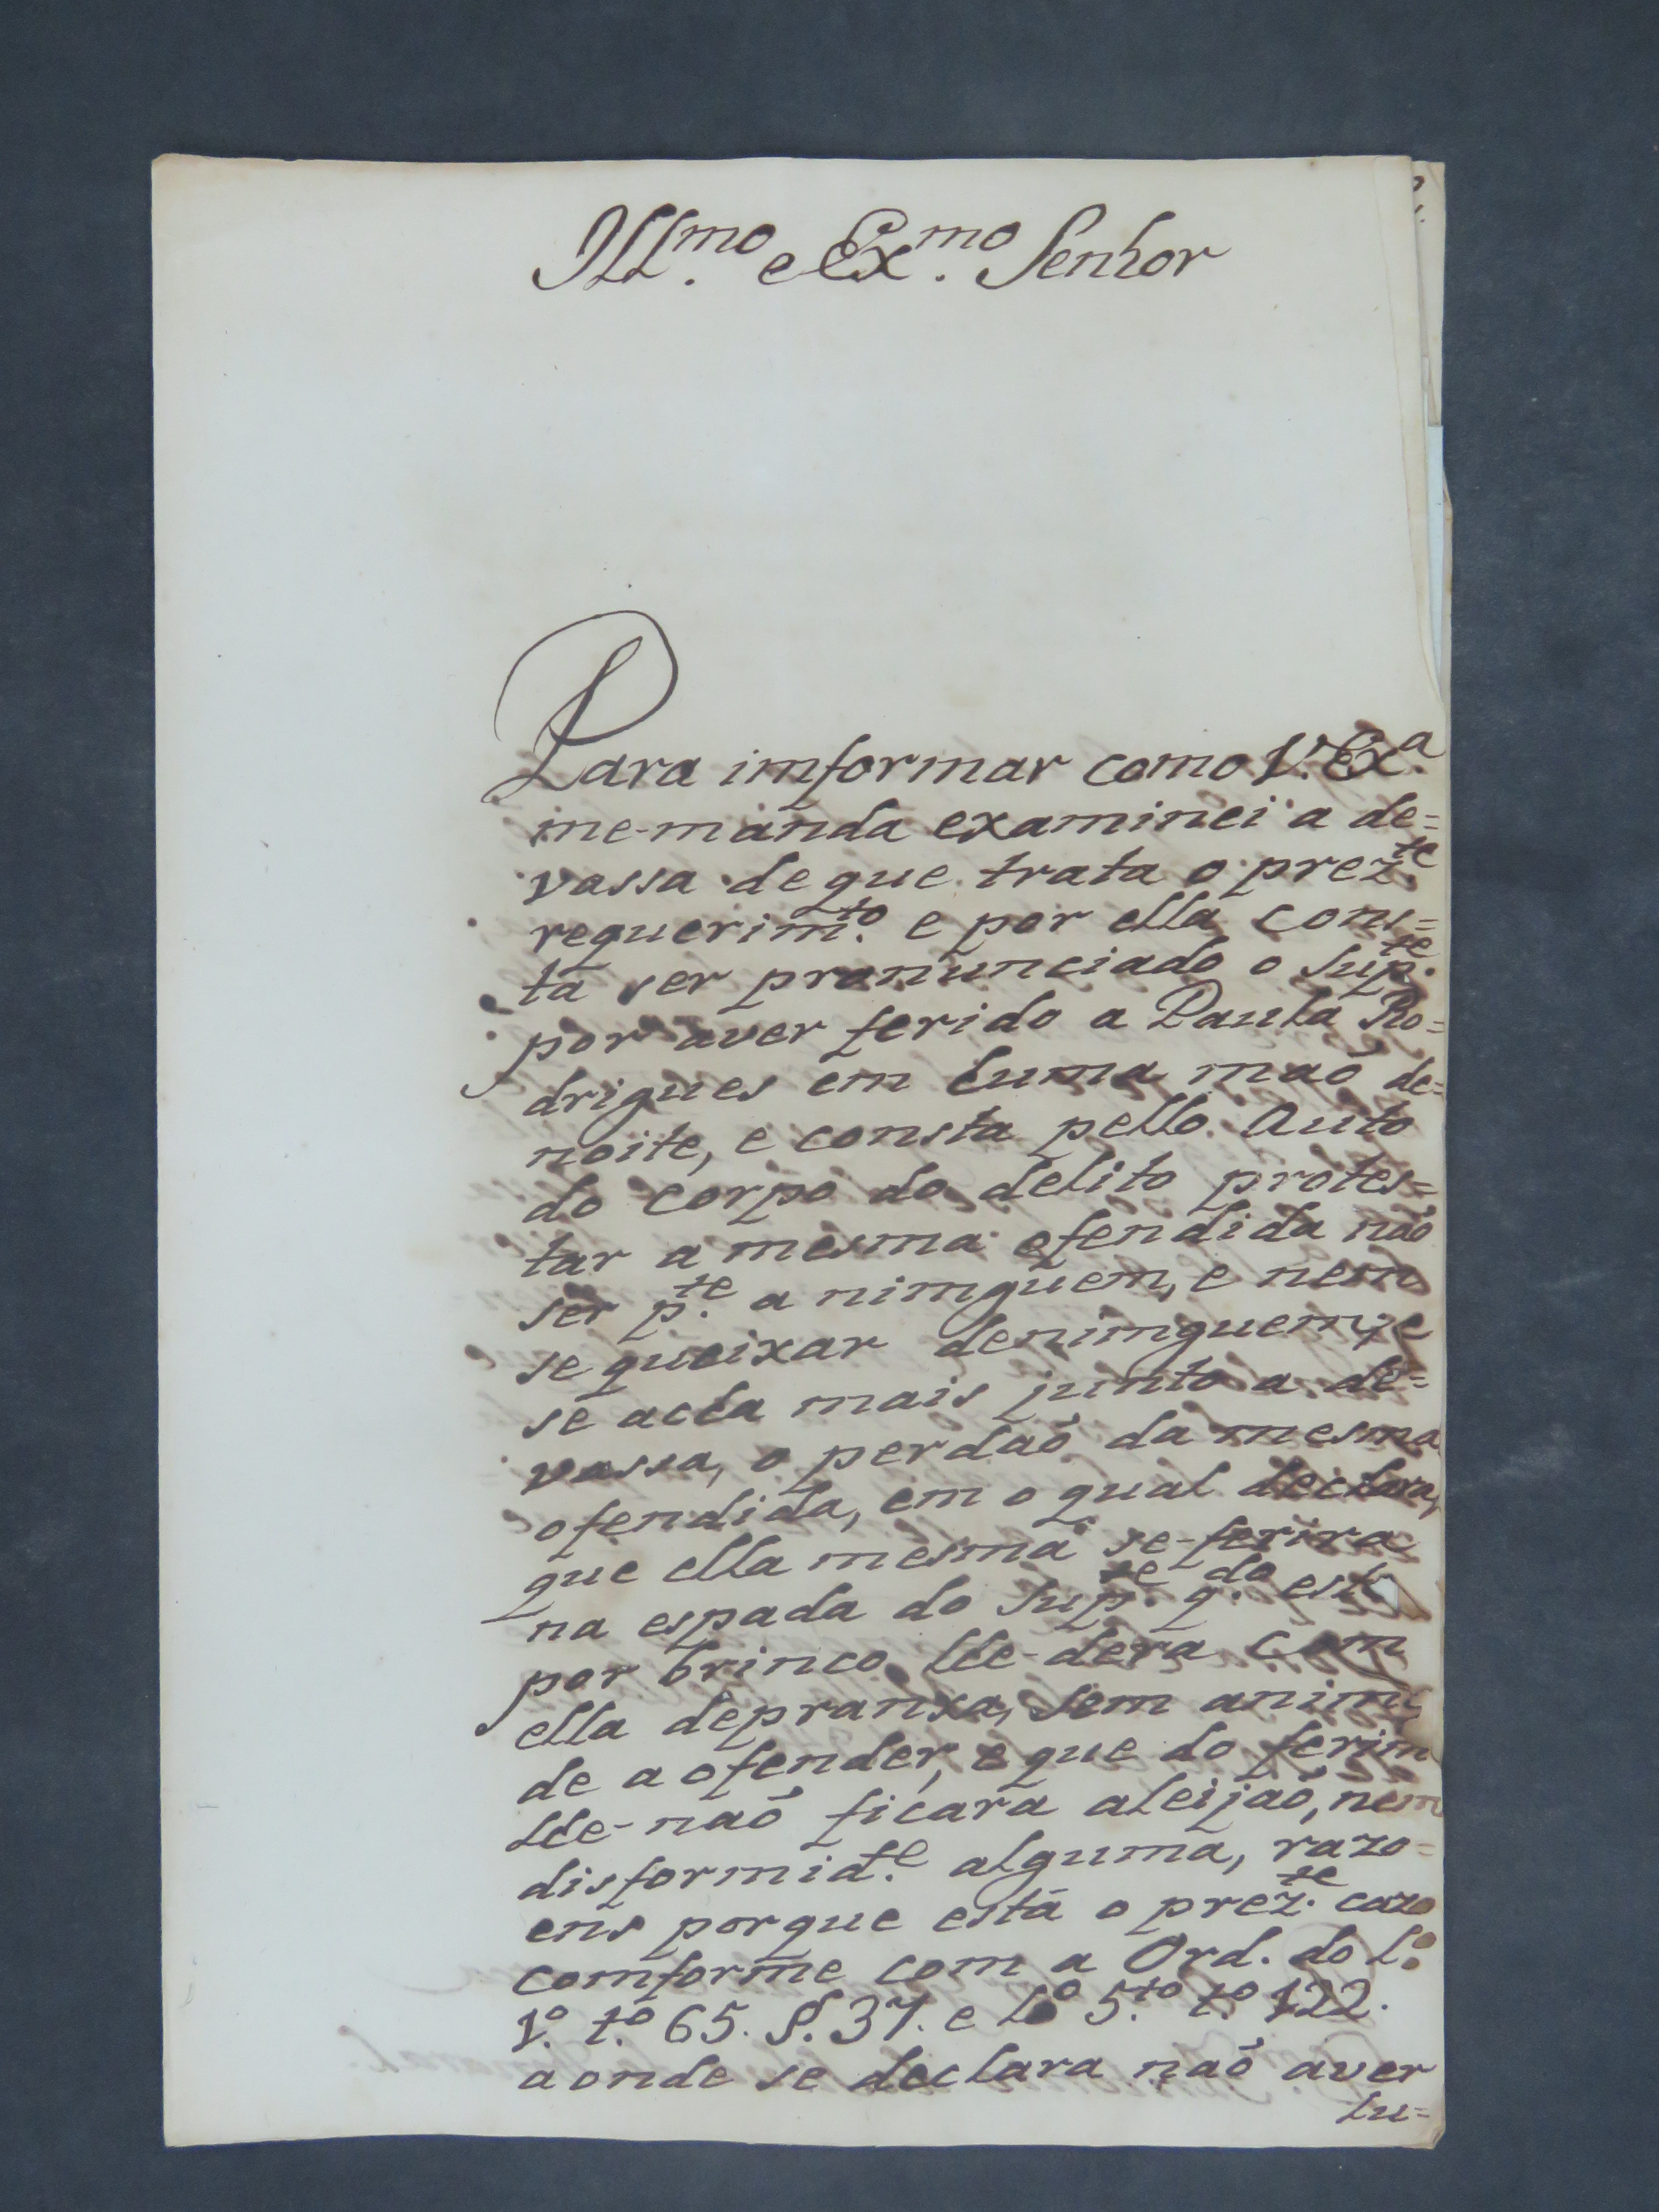 Ill.mo e Ex.mo Senhor
Para imformar como V. Ex.a
me-manda examinei a de=
vassa de que trata o prez.te
requerim.to e por ella cons=
ta ser pronunciado o Sup.te
por aver ferido a Paula Ro=
drigues em huma maõ de=
noite, e consta pello Auto
do corpo do delito protes=
tar a mesma ofendida naõ
ser p.te a nimguem, e nem
se queixar denimguem, e
se acha mais junto a de=
vassa, o perdaõ da mesma
ofendida, em o qual declara,
que ella mesma se-ferira
na espada do Sup.te q.do este
por brinco lhe-dera com
ella depranxa, sem animo
de a ofender, e que do ferim
lhe-naõ ficara aleijaõ, nem
disformid.e alguma, razo=
ens porque está o prez.te cazo
comforme com a Ord. do L.o
1.o t.o 65. §. 37. e L.o 5.to t.o 122.
aonde se declara naõ aver
lu=